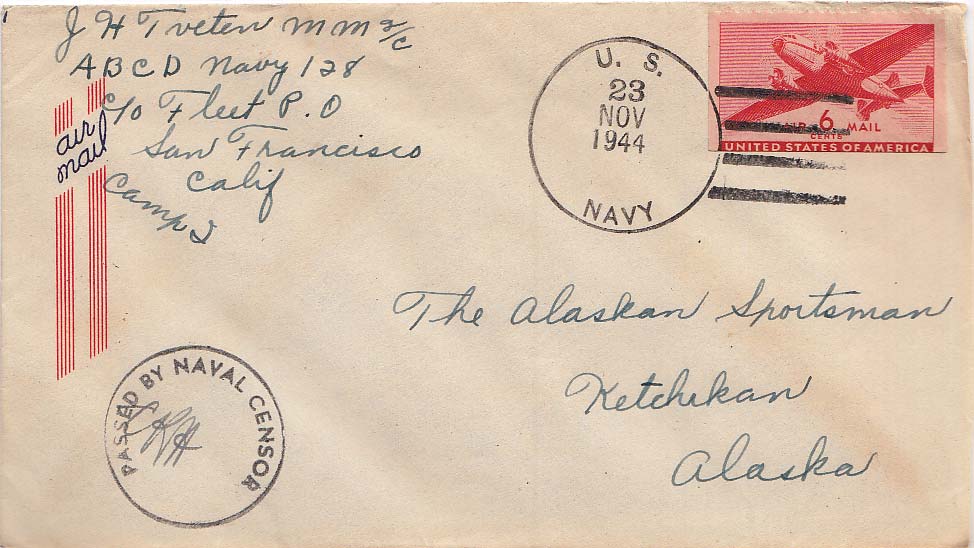 J H Tveten MM 2/c
ABCD Navy 128
c/o Fleet P.O
San Francisco
Calif
Camp 2
air
mail
U. S.
23
NOV
1944
NAVY
AIR 6 MAIL
CENTS
UNITED STATES OF AMERICA
The Alaskan Sportsman
Ketchikan
Alaska
PASSED BY NAVAL CENSOR